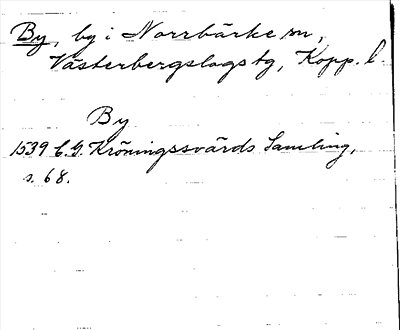 By, by i Norrbärke sn,
Västerbergslags tg, Kopp. l.
By
1539 C.G. Kröningssvärds Samling,
s. 68.